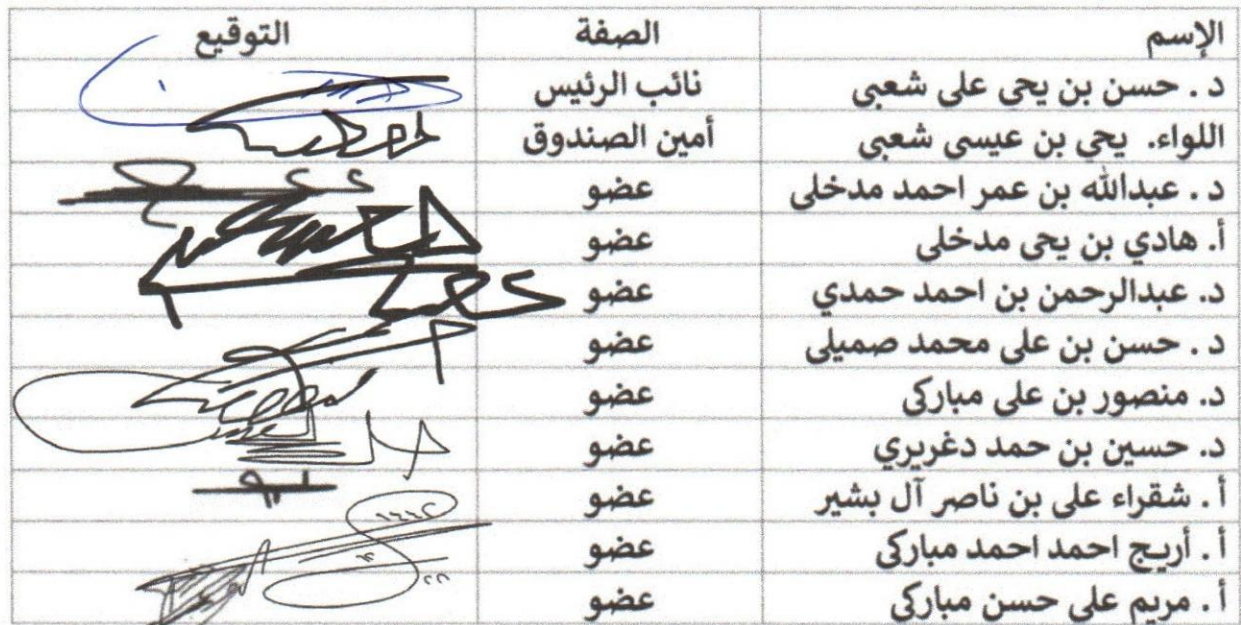 الإسم الصفة التوقيع
د . حسن بن يحي علي شعبي نائب الرئيس
اللواء. يحي بن عيسى شعبي أمين الصندوق
د . عبدالله بن عمر احمد مدخلي عضو
أ. هادي بن يحي مدخلي عضو
د. عبدالرحمن بن احمد حمدي عضو
د . حسن بن علي محمد صميلي عضو
د. منصور بن علي مباركي عضو
د. حسين بن حمد دغريري عضو
أ . شقراء علي بن ناصر آل بشير عضو
أ . أريج احمد احمد مباركي عضو
أ . مريم علي حسن مباركي عضو